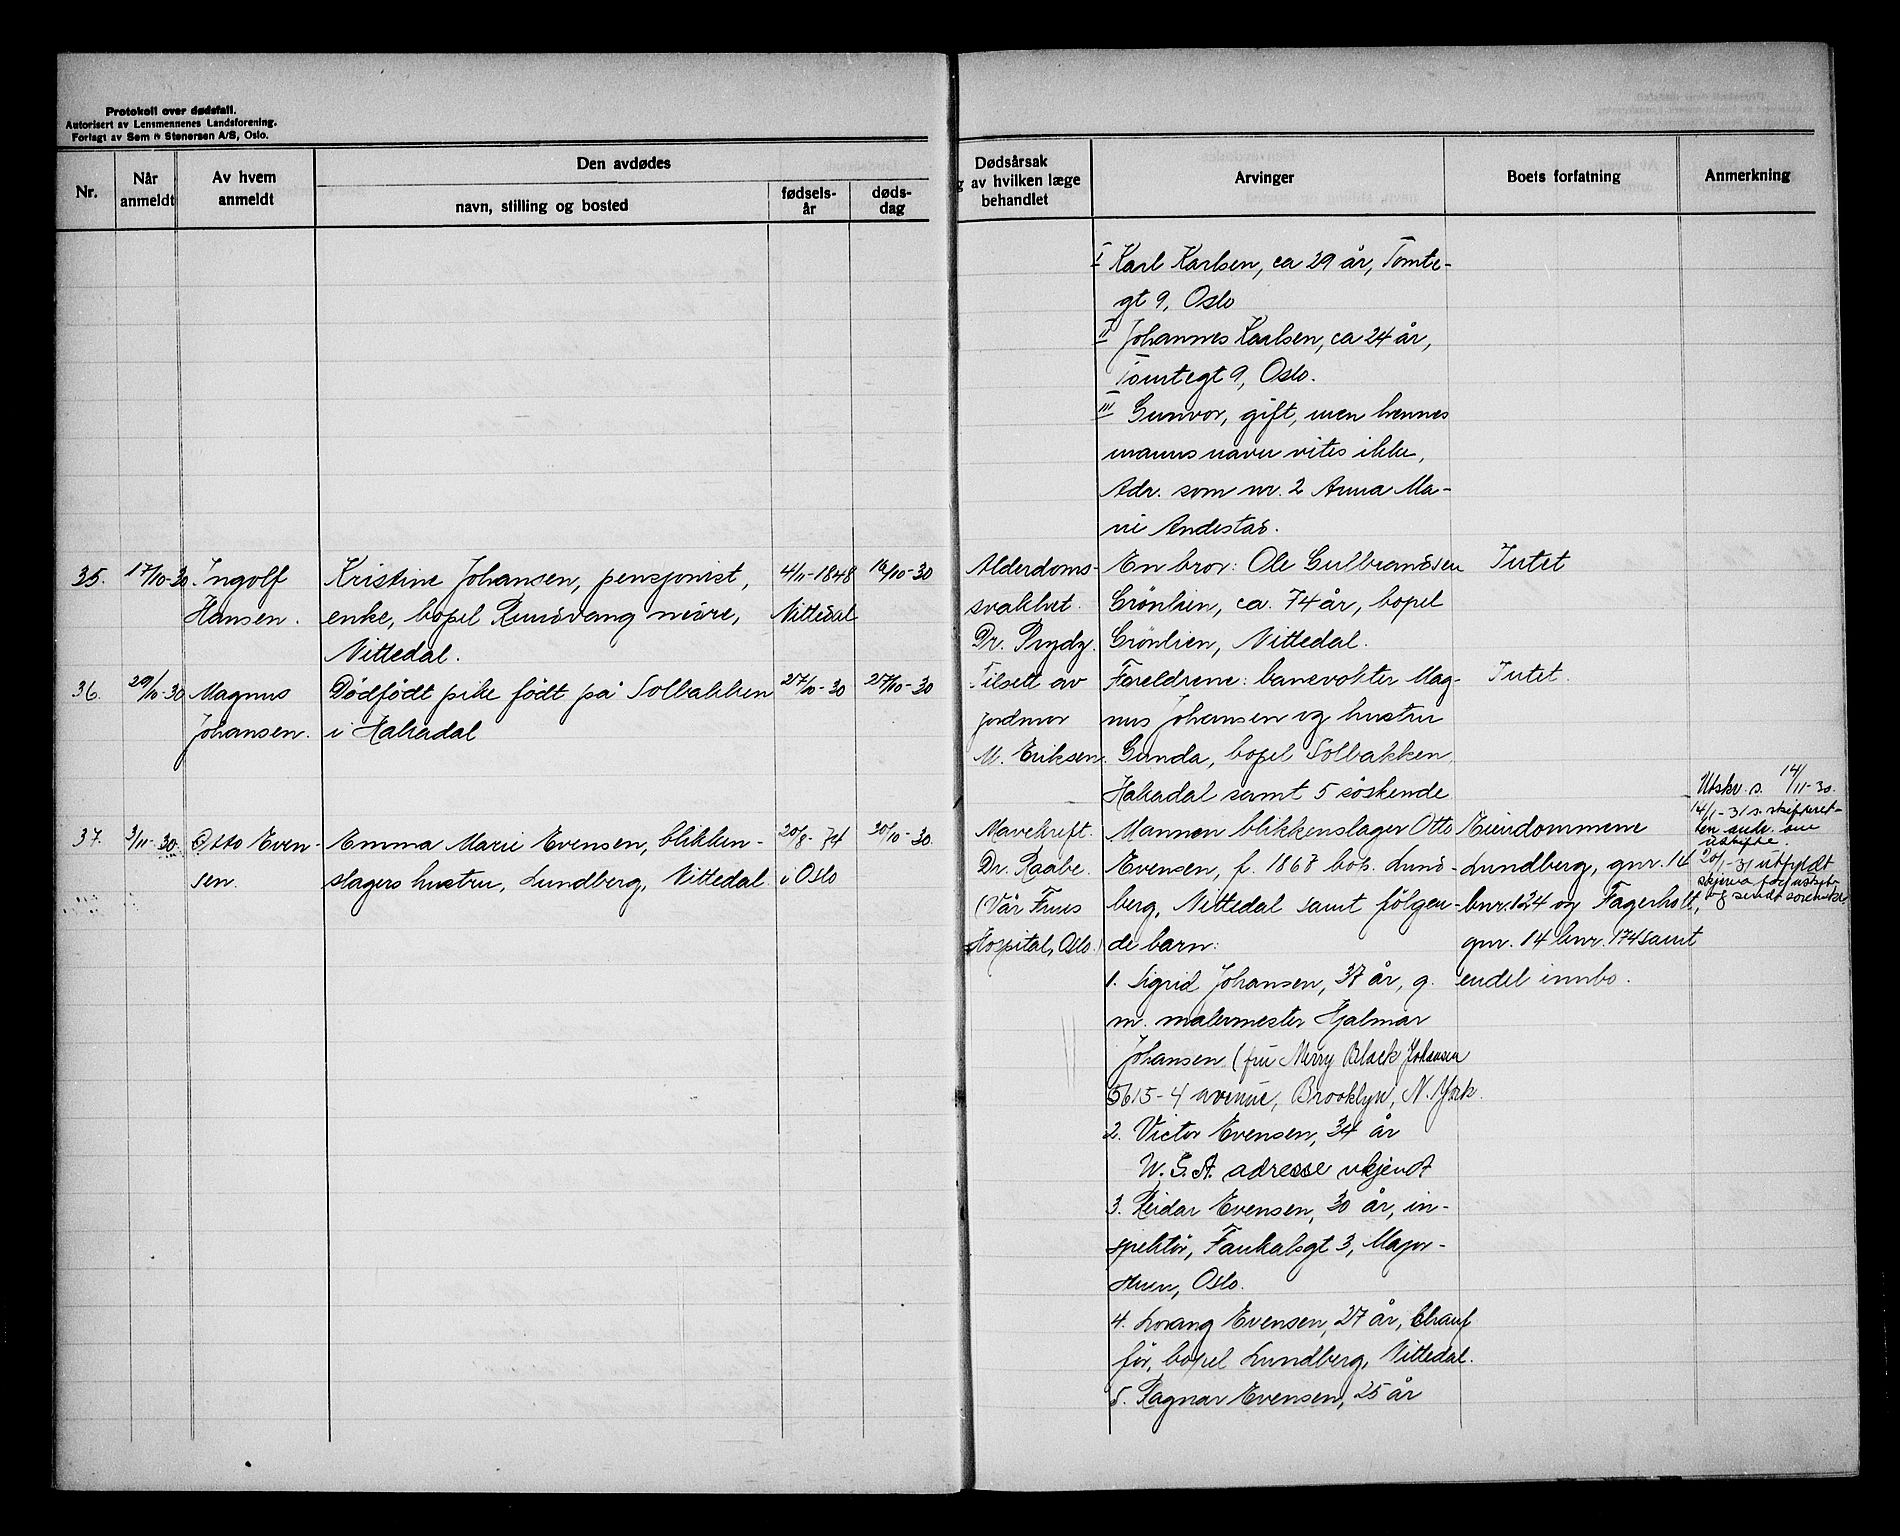 Protokoll over dødsfall.
Autorisert av Lensmennenes Landsforening.
Forlagt av Sem & Stenersen A/S, Oslo.
Nr.
Når
anmeldt
Av hvem
anmeldt
Den avdødes
navn, stilling og bosted
fødsels-
år
døds-
dag
35.
17/10-30
Ingolf
Hansen.
Kristine Johansen, pensjonist,
enke, bopel Rundvang nedre,
Nittedal.
4/11-1848
Nittedal
16/10-30
36.
29/10-30
Magnus
Johansen.
Dødfødt pike født på Solbakken
i Hakadal
27/10-30
27/10-30
37.
3/11-30.
Otto Even-
sen.
Emma Marie Evensen, blikken-
slagers hustru, Lundberg, Nittedal
20/8-74
i Oslo
30/10-30
Dødsårsak
g av hvilken læge
behandlet
Arvinger
Boets forfatning
Anmerkning
I Karl Karlsen, ca 29 år, Tomte-
gt 9, Oslo
II Johannes Karlsen, ca 24 år,
Tomtegt 9, Oslo.
III Gunvor, gift, men hennes
manns navn vites ikke,
Adr. som nr. 2 Anna Ma-
rie Andestad.
Alderdoms-
svakhet.
Dr. Prydz.
En bror: Ole Gulbrandsen
Grönlien, ca. 74 år, bopel
Grönlien, Nittedal.
Intet
Tilsett av
jordmor
M. Eriksen.
Foreldrene: banevokter Mag-
nus Johansen og hustru
Gunda, bopel Solbakken,
Hakadal samt 5 söskende
Intet.
Mavekreft.
Dr. Raabe.
(Vår Frues
Hospital, Oslo.)
Mannen blikkenslager Otto
Evensen, f. 1867 bos. Lund-
berg, Nittedal samt fölgen-
de barn:
1. Sigrid Johansen, 37 år, g.
m. malermester Hjalmar
Johansen (fru Merry Black Johansen
5615-4 avenue, Brooklyn, N. York.
2. Victor Evensen, 34 år
U. S. A. adresse ukjendt
3. Reidar Evensen, 30 år, in-
spektör, Faukalsgt 3, Major-
stuen, Oslo.
4. Lorang Evensen, 27 år, Chauf
för, bopel Lundberg, Nittedal.
5. Ragnar Evensen, 25 år
Eiendommene
Lundberg, gnr. 14
bnr. 124 og Fagerholt,
gnr. 14 bnr. 174 samt
endel innbo.
Utskr. s. 14/11-30.
14/1-31 s. skifteret-
ten andr. om
uskifte.
20/1-31 utfyldt
skjema for uskifte
og sendt sorenskr.